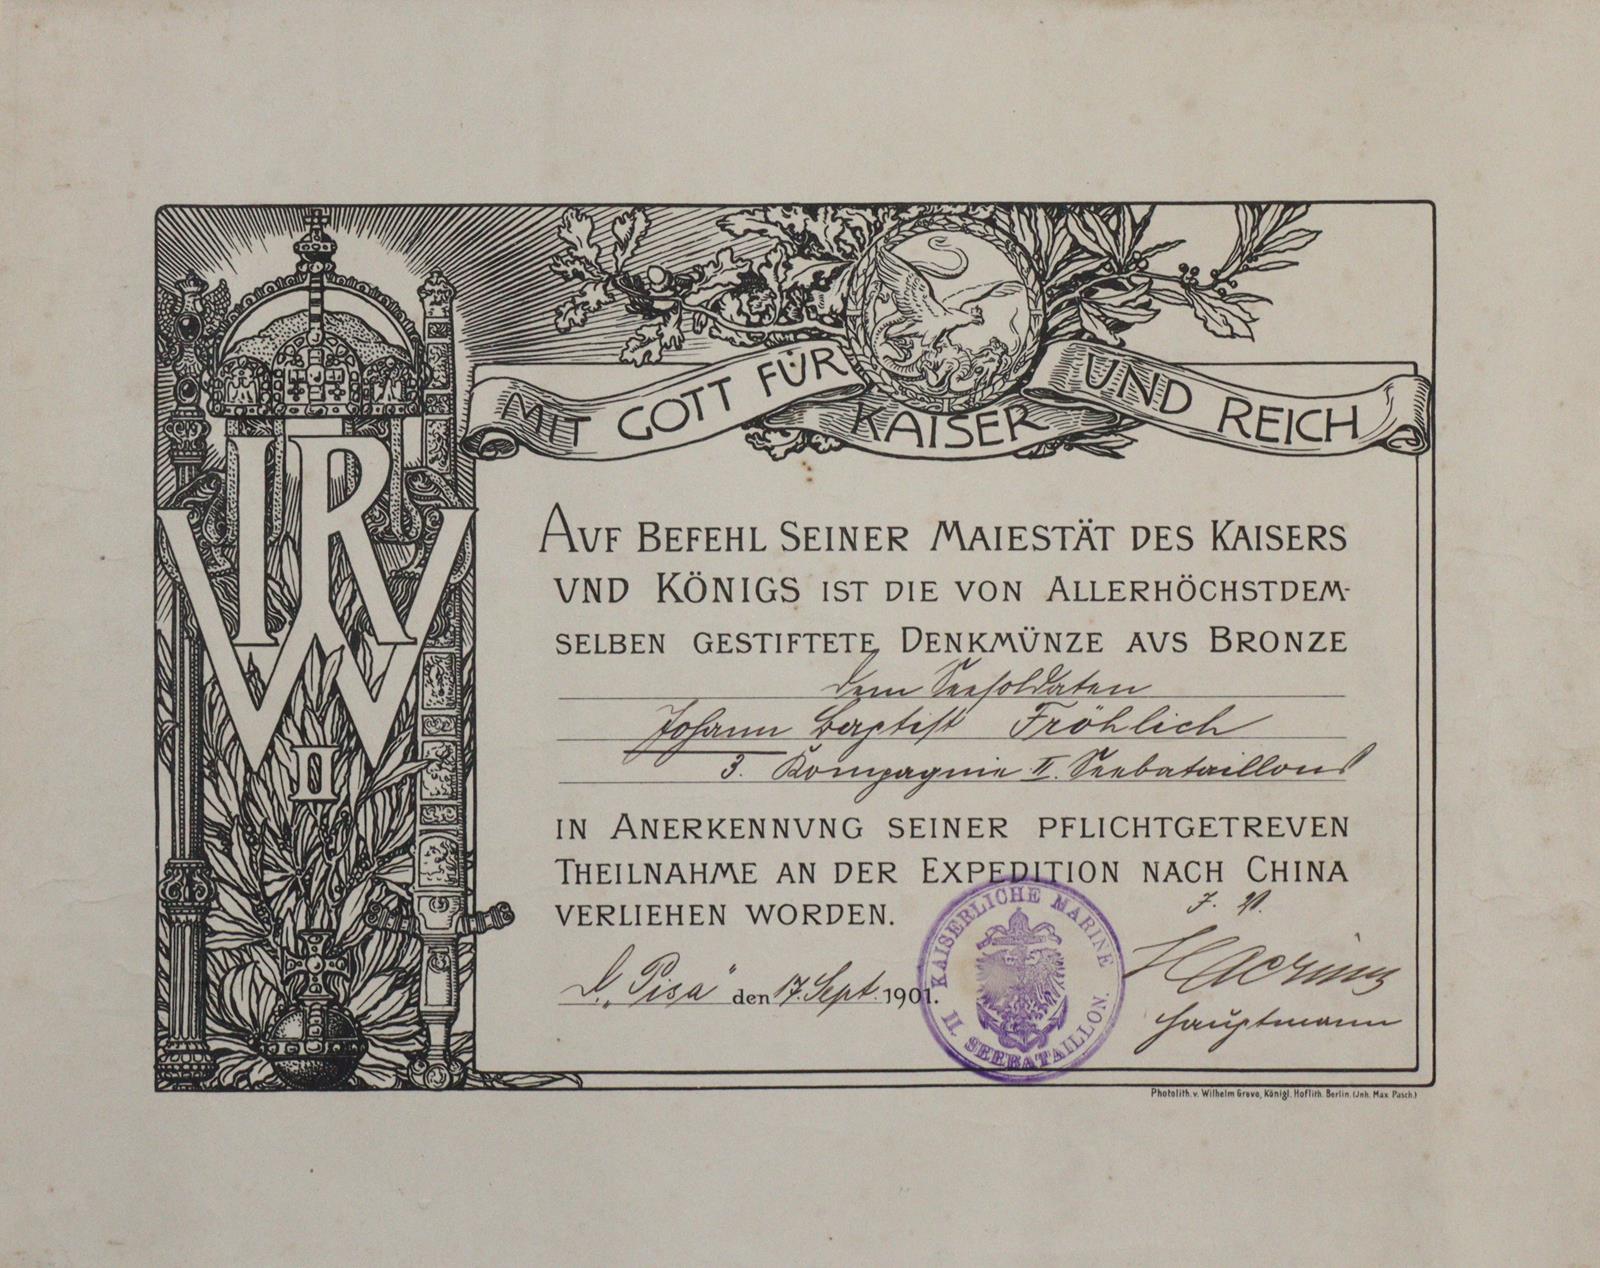 MIT GOTT FÜR KAISER UND REICH
IRW
II
AVF BEFEHL SEINER MAIESTÄT DES KAISERS
VND KÖNIGS IST DIE VON ALLERHÖCHSTDEM-
SELBEN GESTIFTETE DENKMÜNZE AVS BRONZE
dem Seesoldaten
Johann Baptist Fröhlich
3. Kompagnie II. Seebataillons
IN ANERKENNVNG SEINER PFLICHTGETREVEN
THEILNAHME AN DER EXPEDITION NACH CHINA
VERLIEHEN WORDEN.
D. „Pisa" den 17. Sept. 1901.
Hauptmann
KAISERLICHE MARINE
II. SEEBATAILLON.
Photolith. v. Wilhelm Greve, Königl. Hoflith. Berlin. (Jnh. Max Pasch.)